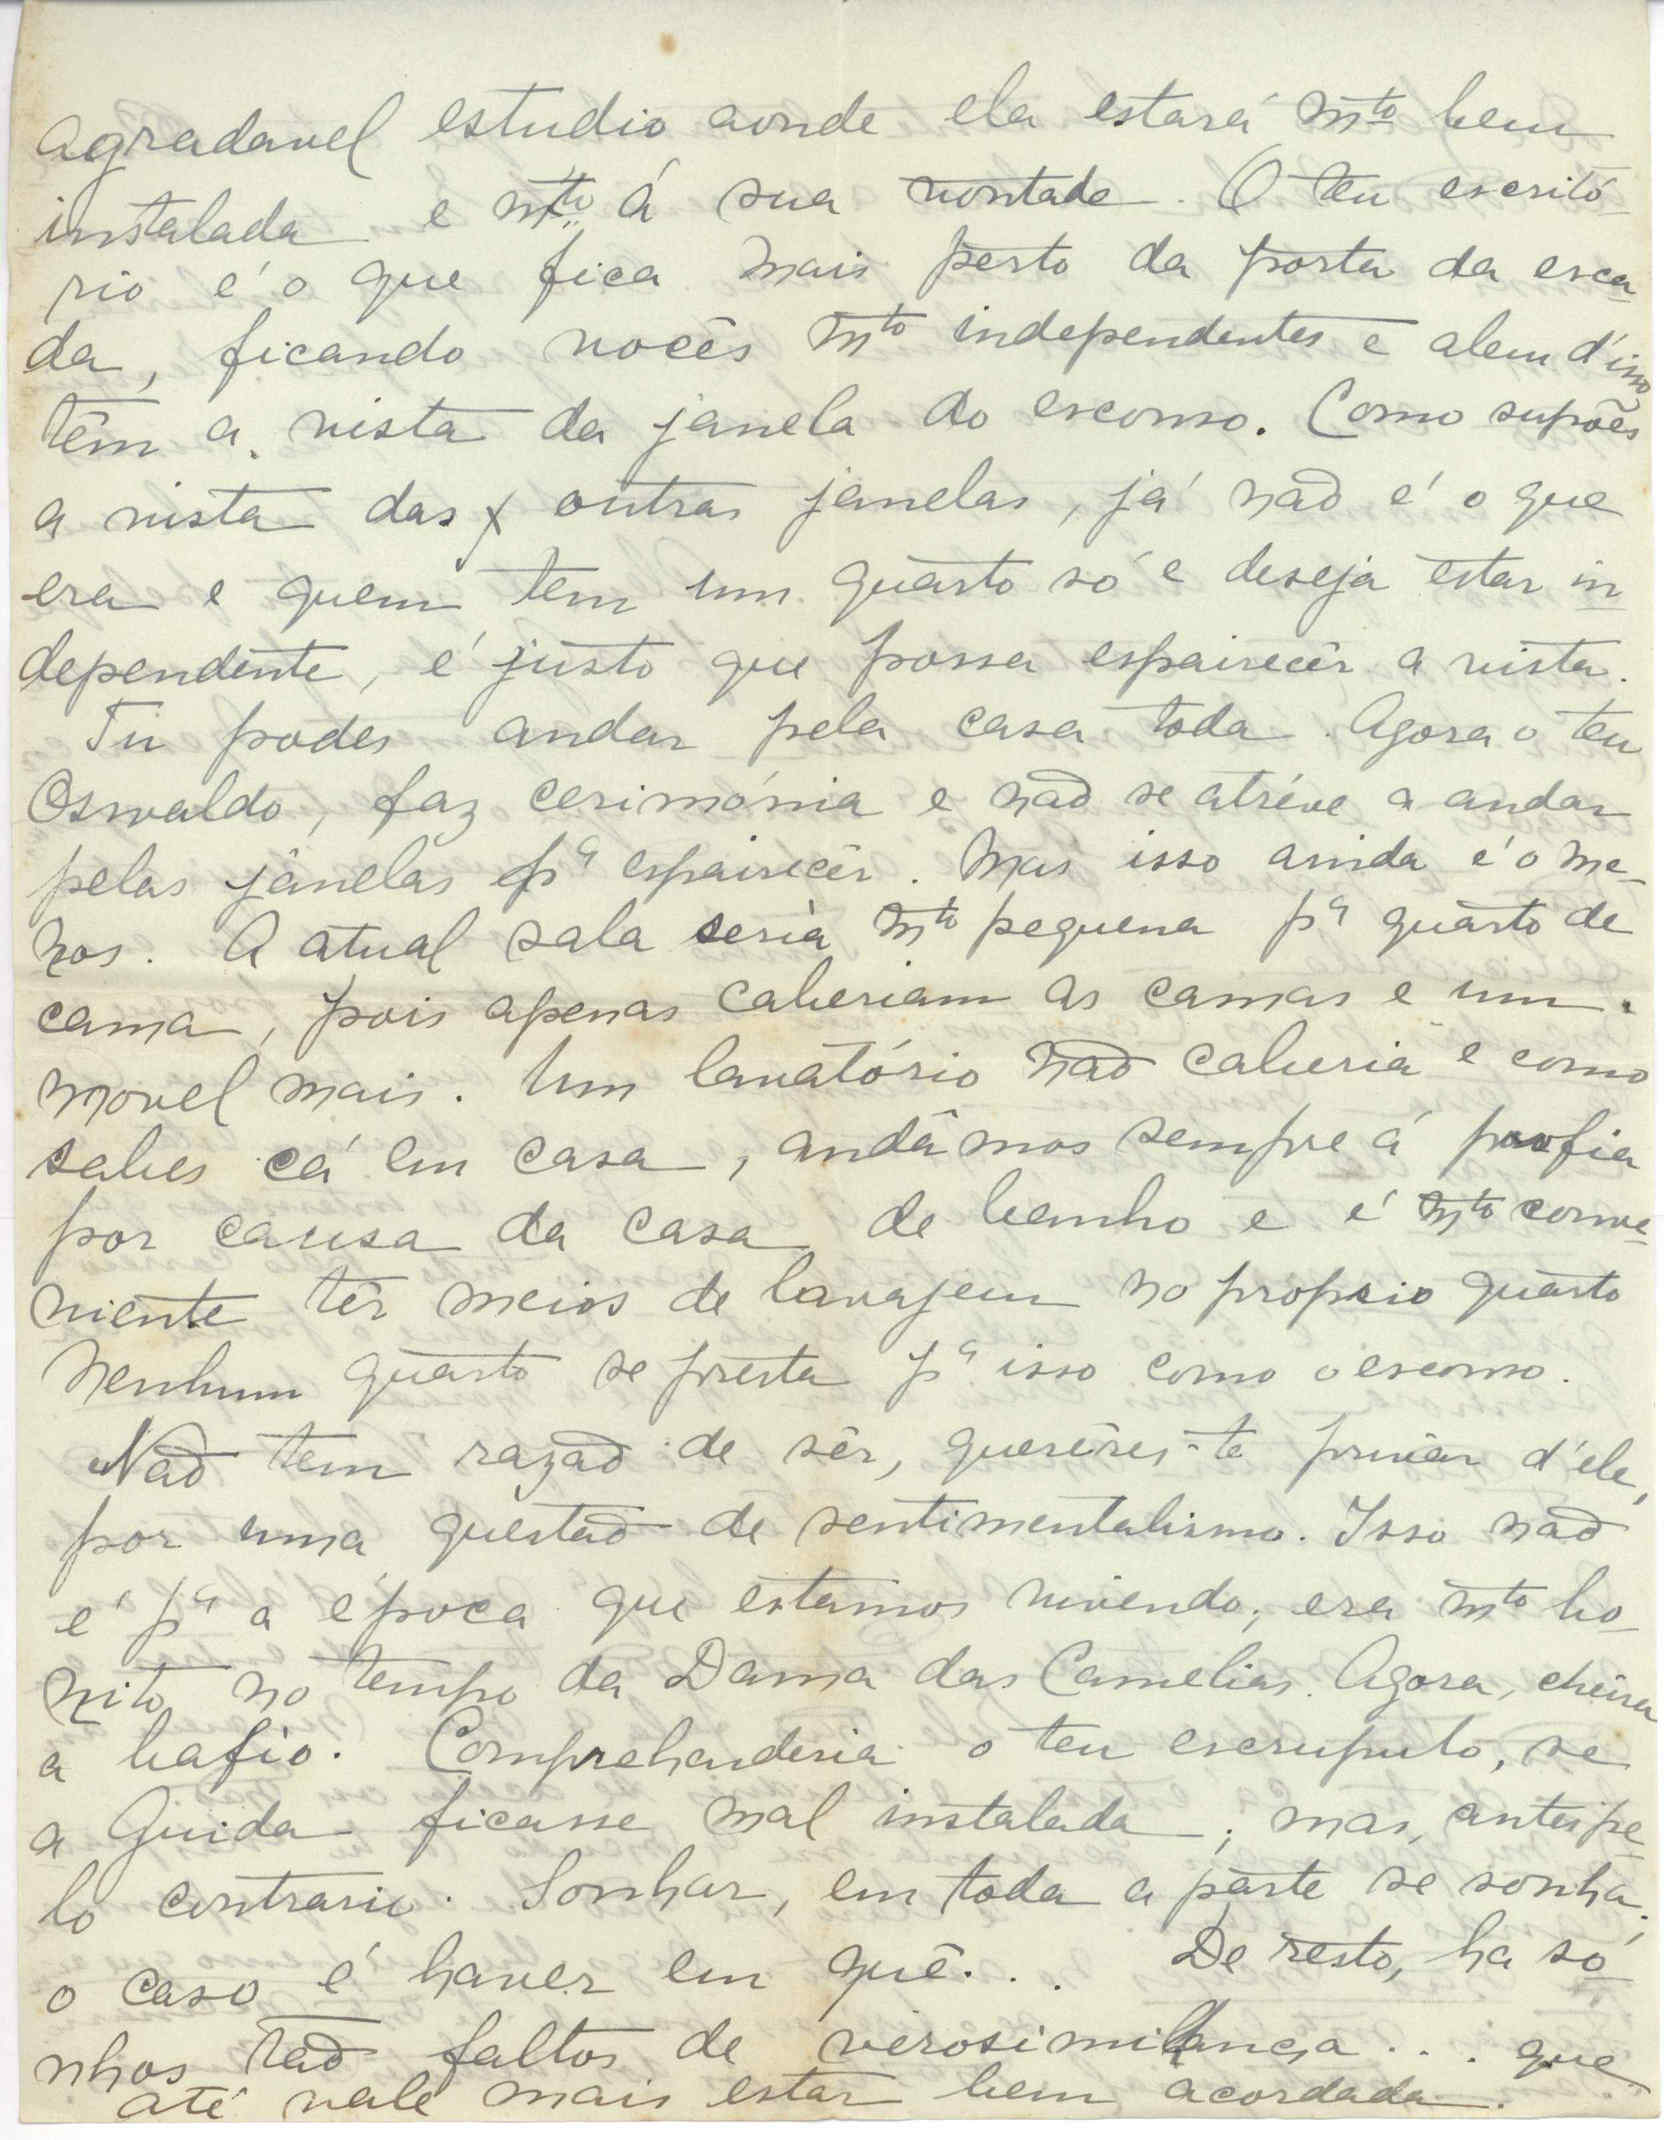 Agradavel estudio aonde ela estará mto bem
instalada e mto á sua vontade. O teu escritó-
rio é o que fica mais perto da porta da esca-
da, ficando vocês mto independentes e alem d'isso
têm a vista da janela do esconso. Como supões
a vista das outras janelas, já não é o que
era e quem tem um quarto só e deseja estar in-
dependente, é justo que possa espairecêr a vista.
Tu podes andar pela casa toda. Agora o teu
Oswaldo, faz cerimónia e não se atréve a andar
pelas janelas pa espairecêr. Mas isso ainda é o me-
nos. A atual sala seria mto pequena pa quarto de
cama, pois apenas caberiam as camas e um
movel mais. Um lavatório não caberia e como
sabes cá em casa, andâmos sempre á porfia
por causa da casa de banho e é mto conve-
niente têr meios de lavajem no proprio quarto
Nenhum quarto se presta pa isso como o esconso.
Não tem razão de sêr, querêres-te privar d'ele,
por uma questão de sentimentalismo. Isso não
é pa a época que estamos vivendo; era mto bo-
nito no tempo da Dama das Camelias. Agora, cheira
a bafio. Comprehenderia o teu escrupulo, se
a Guida ficasse mal instalada; mas, antes pe-
lo contrario. Sonhar, em toda a parte se sonha,
o caso é haver em quê... De resto, ha só-
nhos tão faltos de verosimilança... que
até vale mais estar bem acordada.